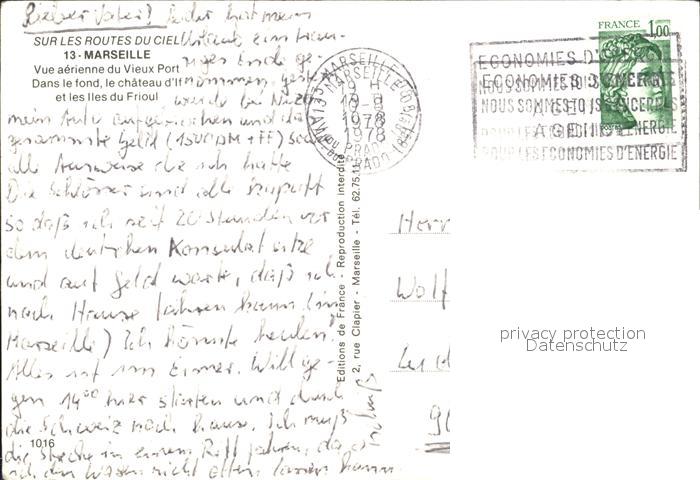 Lieber Vater! Leider hat mein
SUR LES ROUTES DU CIEL
Urlaub ein trau-
13 - MARSEILLE
riges Ende ge-
Vue aérienne du Vieux Port
nommen, gestern
Dans le fond, le château d'If
wurde bei Nizza
et les Iles du Frioul
mein Auto aufgebrochen und das
gesamte Geld (1500 DM + FF) sowie
alle Ausweise die ich hatte
Die Schlösser sind alle kaputt
so daß ich seit 20 Stunden vor
dem deutschen Konsulat sitze
und auf Geld warte, daß ich
nach Hause fahren kann (in
Marseille) Ich könnte heulen!
Alles ist im Eimer. Will ge-
gen 14⁰⁰ hier starten und durch
die Schweiz nach hause. Ich muß
die Strecke in einem Ritt fahren, da
ich den Wagen nicht offen lassen kann.
1016
Editions de France - Reproduction interdite
2, rue Clapier - Marseille - Tél. 62.75.11
MARSEILLE
9 H
1978
PRADO
ECONOMIES D'ENERGIE
NOUS SOMMES TOUS CONCERNES
AGENCE
POUR LES ECONOMIES D'ENERGIE
FRANCE 1,00
Herr
Wolf
privacy protection
Datenschutz